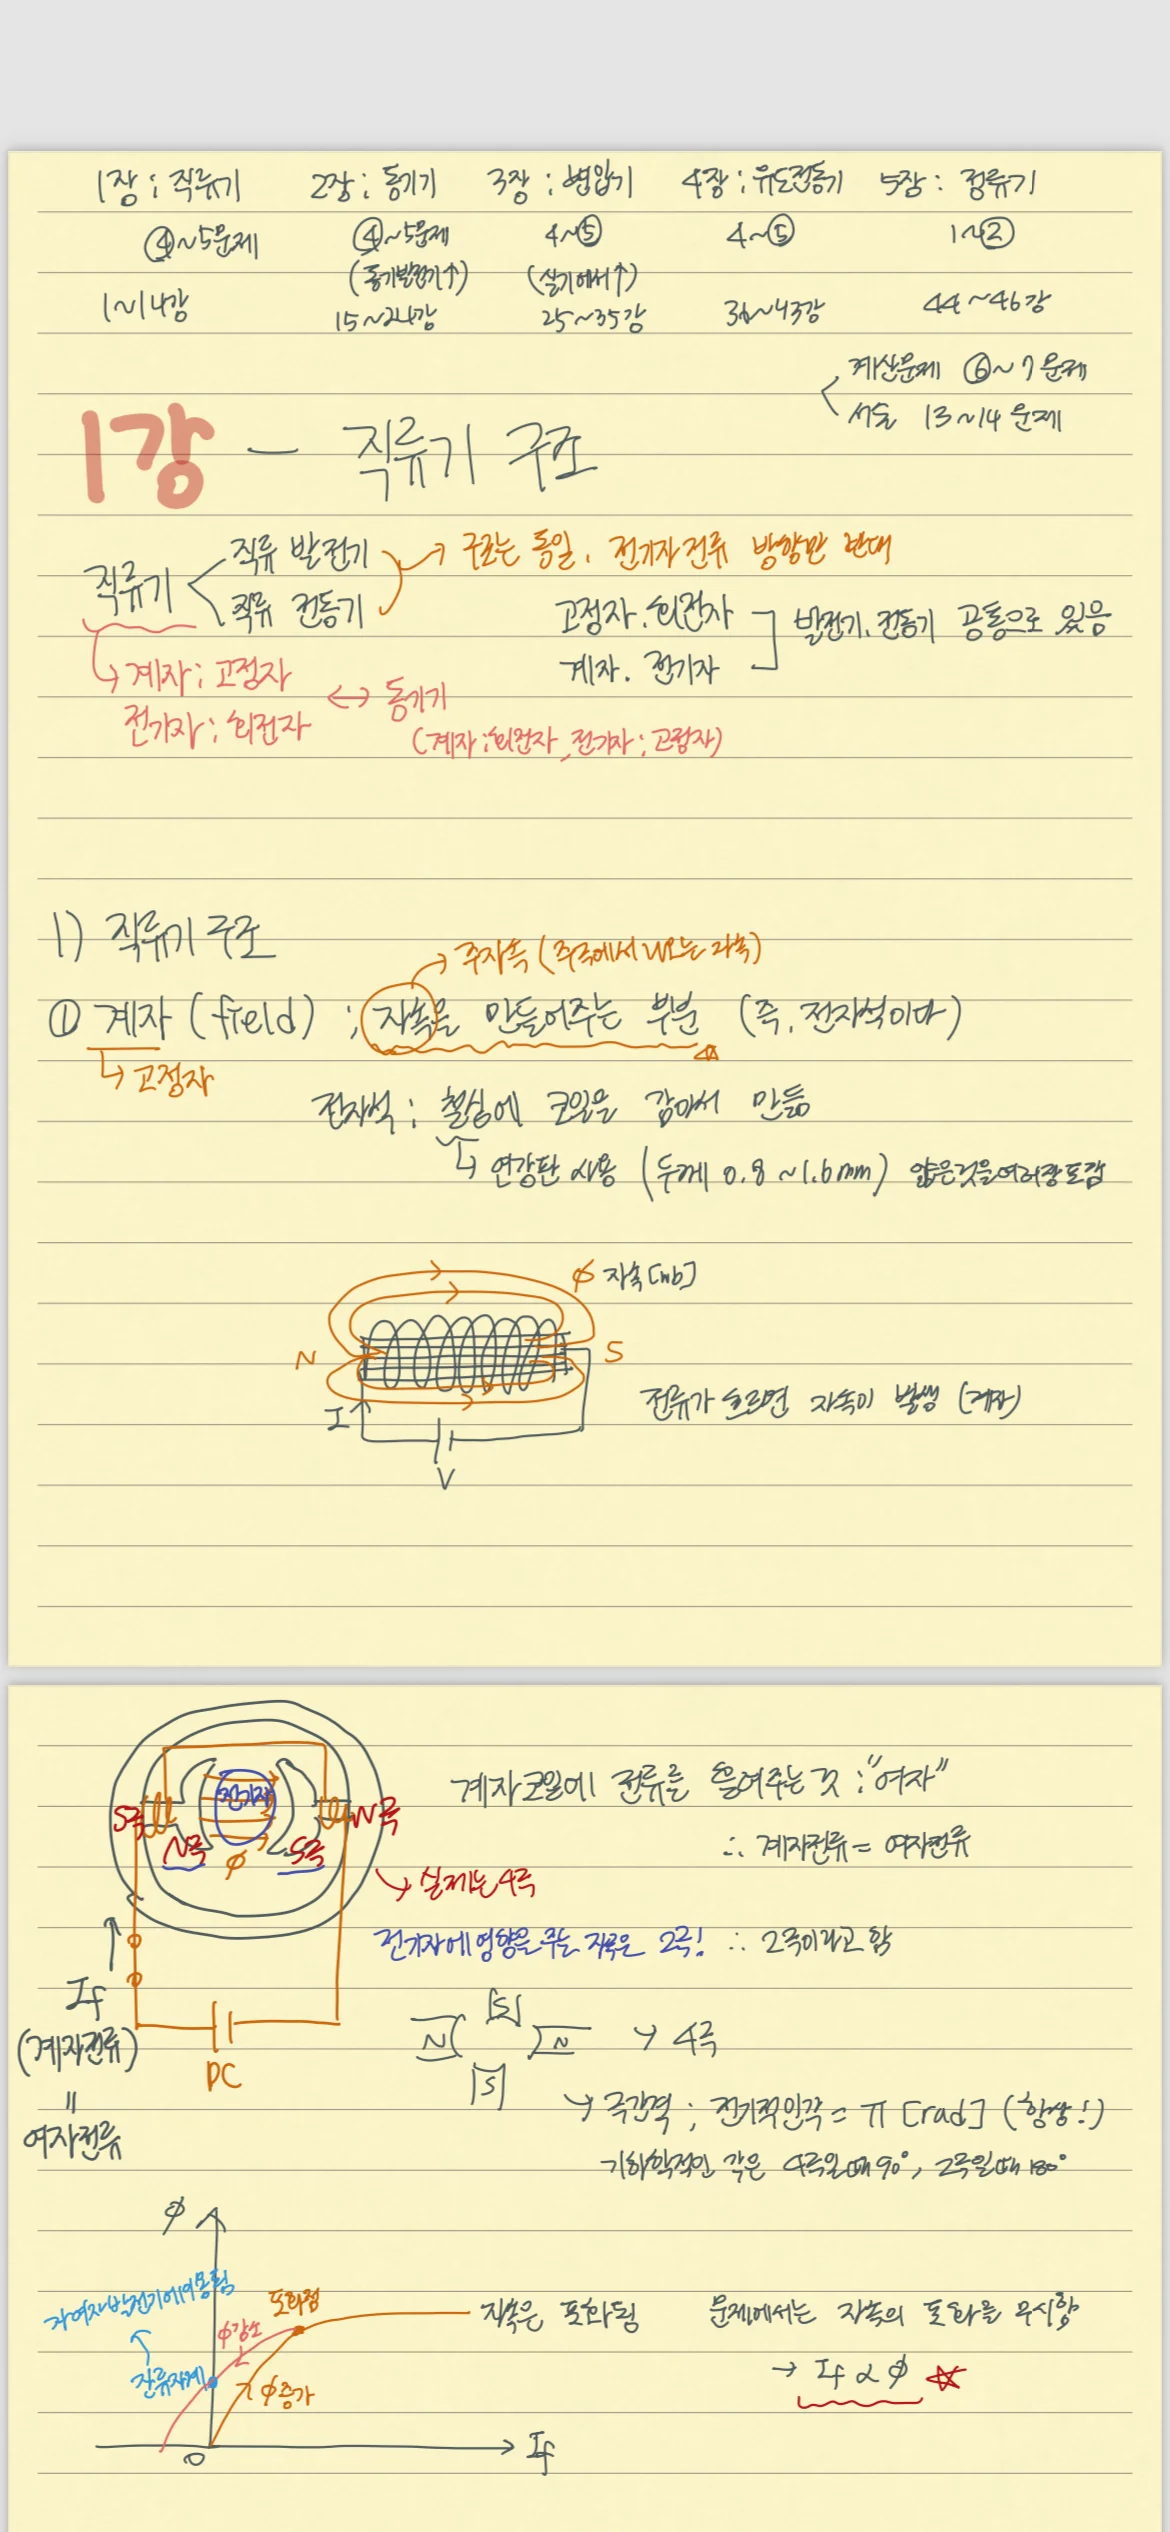 1장 : 직류기 2장 : 동기기 3장 : 변압기 4장 : 유도전동기 5장 : 정류기
④~5문제 ④~5문제 4~⑤ 4~⑤ 1~②
(동기발전기↑) (실기에서↑)
1~14강 15~24강 25~35강 36~43강 44~46강
계산문제 ⑥~7문제
서술 13~14문제
1강 - 직류기 구조
직류기
직류 발전기
직류 전동기
→ 구조는 동일, 전기자전류 방향만 반대
고정자. 회전자
계자. 전기자
발전기, 전동기 공통으로 있음
↳ 계자 : 고정자
전기자 : 회전자 ↔ 동기기
(계자 : 회전자, 전기자 : 고정자)
1) 직류기 구조
→ 주자속 (주극에서 나오는 자속)
① 계자 (field) ; 자속을 만들어주는 부분 (즉, 전자석이다)
↳ 고정자
전자석 : 철심에 코일을 감아서 만듦
↳ 연강판 사용 (두께 0.8~1.6mm) 얇은것을여러장포갬
ϕ 자속[wb]
N S
I
V
전류가 흐르면 자속이 발생 (계자)
전기자
S극 N극
N극 ϕ S극
계자코일에 전류를 흘려주는 것 : "여자"
∴ 계자전류 = 여자전류
→ 실제는 4극
전기자에 영향을 주는 자극은 2극! ∴ 2극이라고 함
If
(계자전류)
=
여자전류
DC
S
N N → 4극
S
→ 극간격 ; 전기적인각 = π [rad] (항상!)
기하학적인 각은 4극일때 90°, 2극일때 180°
ϕ
자여자발전기에이용됨
잔류자계
ϕ감소
포화점
ϕ증가
자속은 포화됨
문제에서는 자속의 포화를 무시함
→ If ∝ ϕ ☆
0
If